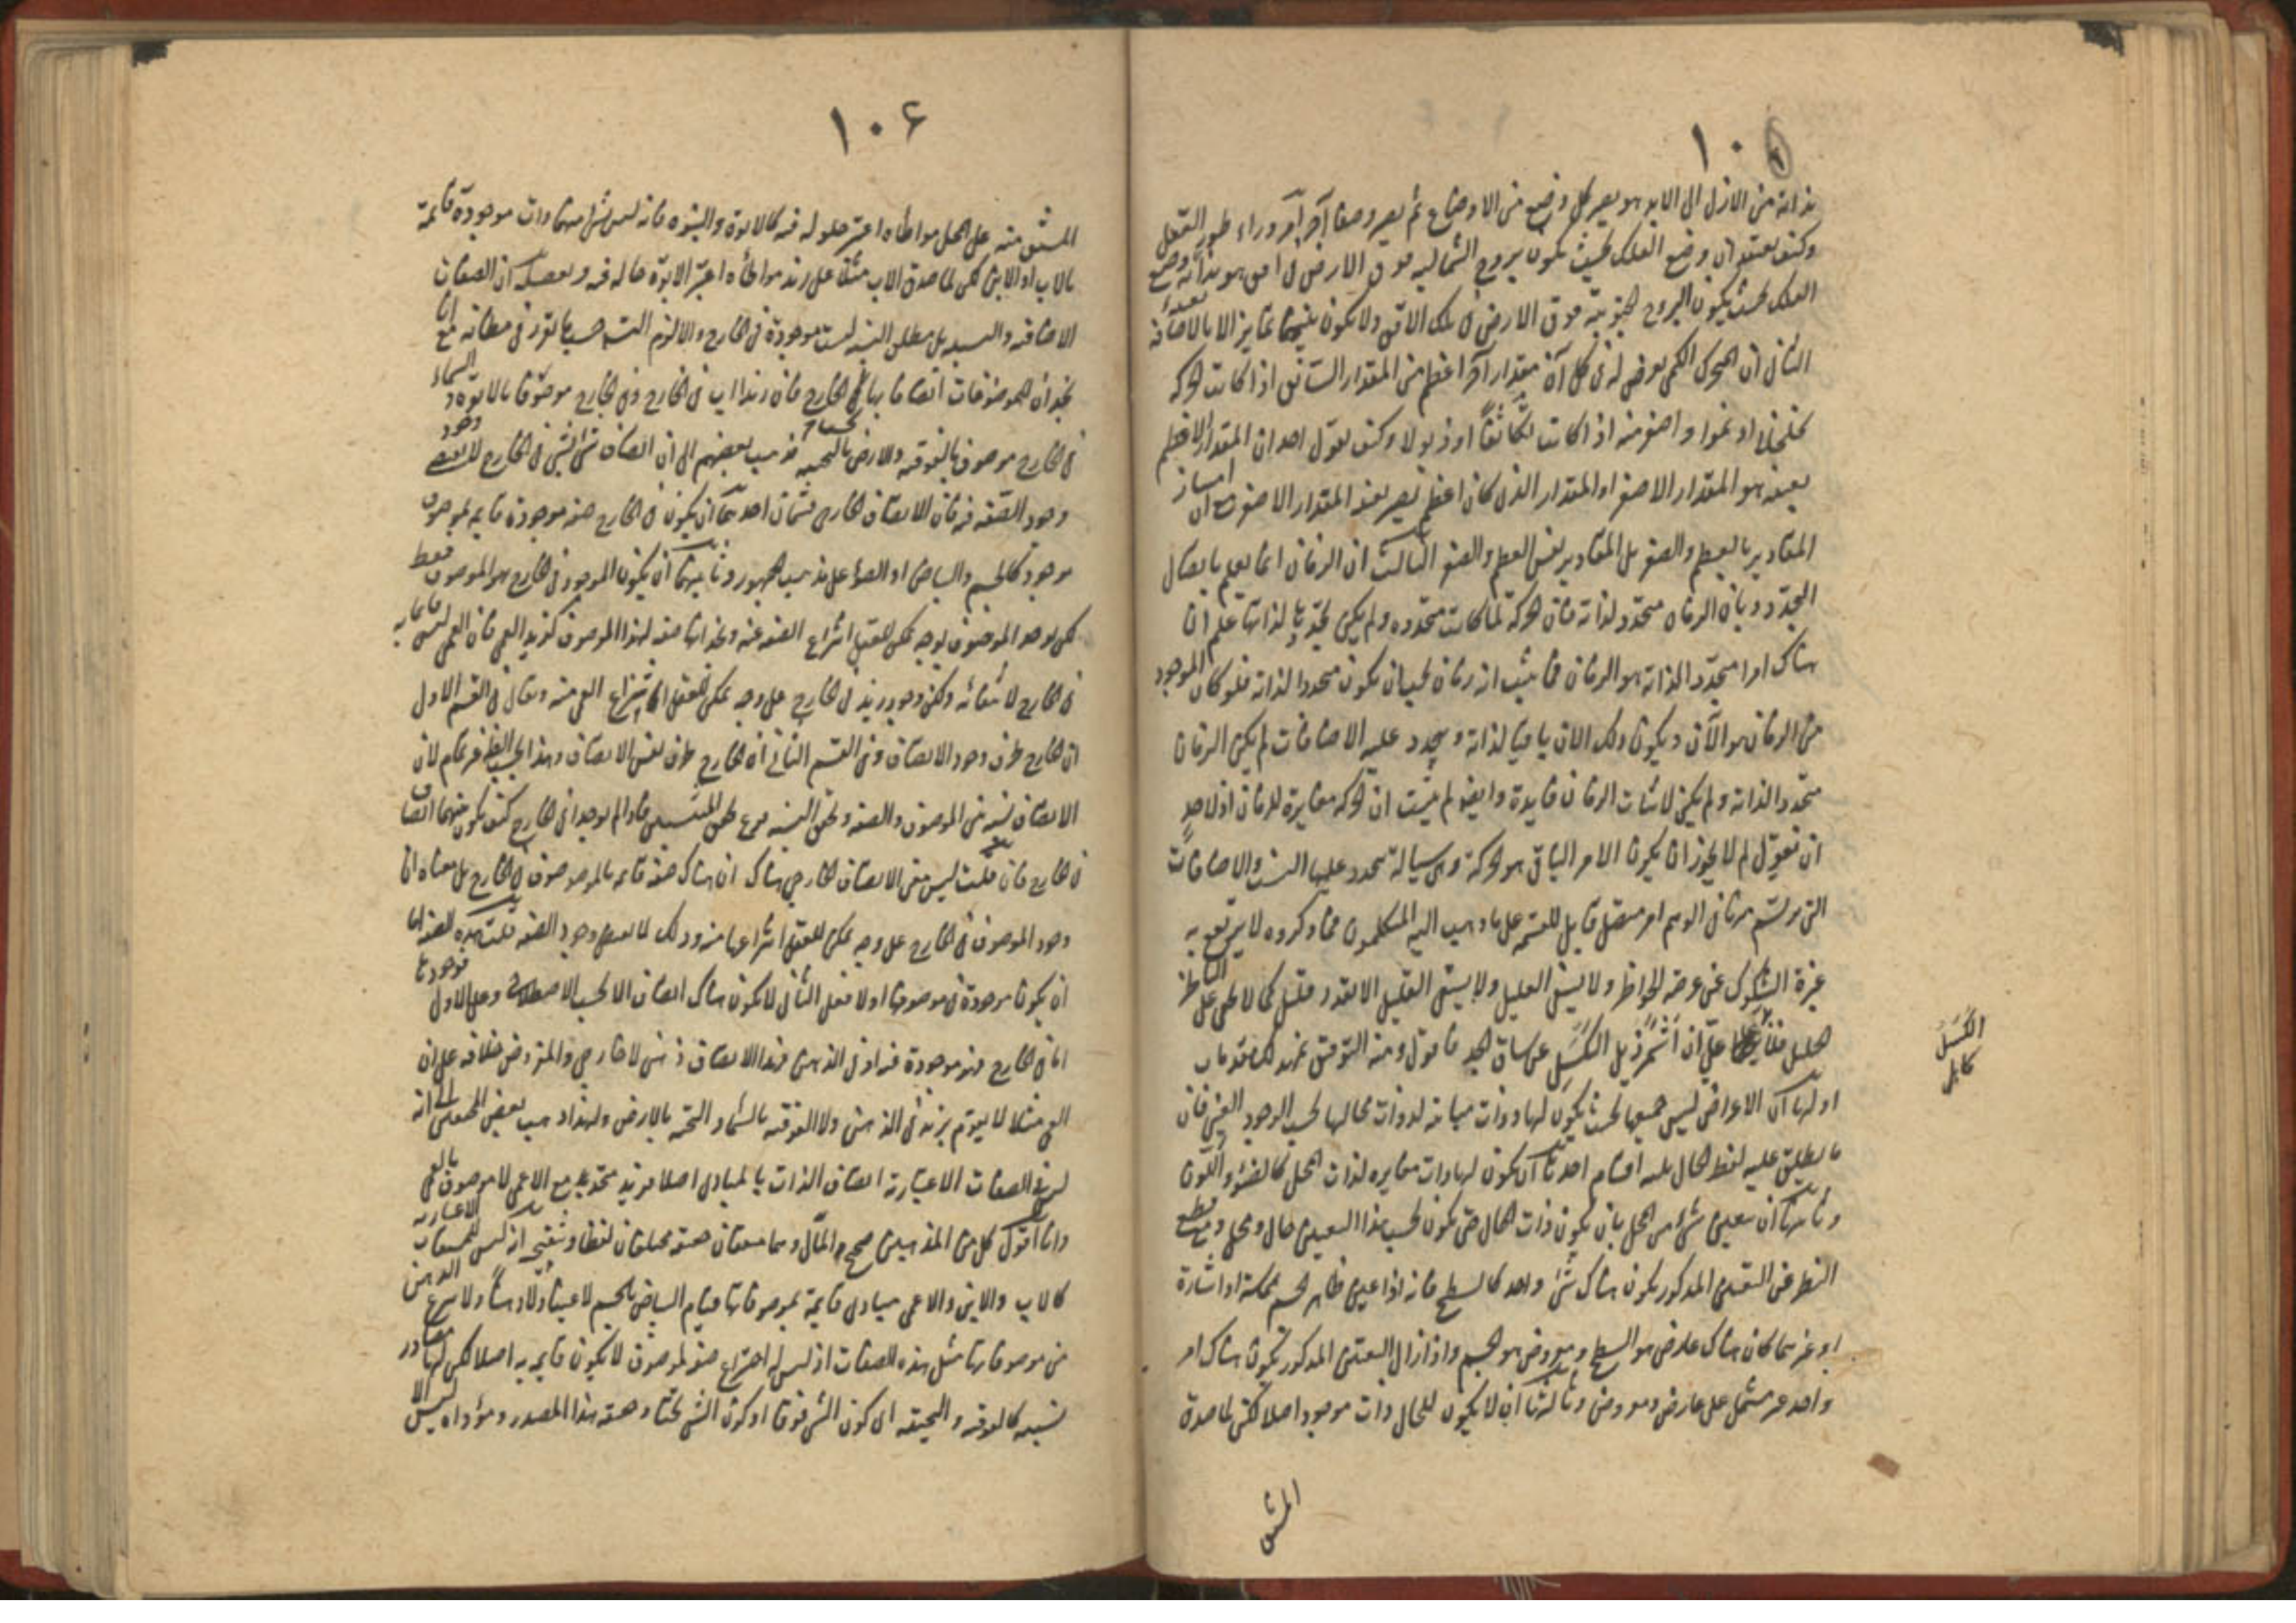 ١٠٥
بذاته من الازل الى الابد هو بعينه كل وضع من الاوضاع ثم يصير وصفا آخر آخر وراء طور العقل
وكيف يعتقد ان وضع الفلك بحيث يكون بروج الشمالية فوق الارض فى افق هو بذاته وضع
الفلك بحيث يكون البروج الجنوبية فوق الارض فى تلك الافق ولا يكون بينهما تمايز الا بالاضافة
الثانى ان المتحرك الكمى يعرض له فى كل آن مقدار آخر اعظم من المقدار السابق اذا كانت الحركة
تخلخلا او نموا واصغر منه اذا كانت تكاثفا او ذبولا وكيف يقول احد ان المقدار الاعظم
بعينه هو المقدار الاصغر او المقدار الذى كان اعظم يصير بعينه المقدار الاصغر مع ان امتياز
المقادير بالعظم والصغر بل المقادير نفس العظم والصغر الثالث ان الزمان انما يعلم باتصال
التجدد وبان الزمان متجدد لذاته فان الحركة لما كانت متجددة ولم يكن تجددها لذاتها علم ان
هناك امرا متجددا لذاته هو الزمان فما يثبت انه زمان يجب ان يكون متجددا لذاته فلو كان الموجود
من الزمان هو الآن ويكون ذلك الان باقيا لذاته ويتجدد عليه الاضافات لم يكن الزمان
متجددا لذاته ولم يكن لاثبات الزمان فايدة وايضا لم يثبت ان الحركة مغايرة للزمان اذ لاحد
ان يقول لم لا يجوز ان يكون الامر الباقى هو الحركة وهى سيالة يتجدد عليها النسب والاضافات
التى يرتسم منها فى الوهم امر متصل قابل للقسمة على ما ذهب اليه المتكلمون فما ذكروه لا يرتفع به
غبرة الشكوك عن عرصة الخواطر ولا يشفى العليل ولا يسقى الغليل الا بقدر قليل كما لا يخفى على الناظر
الجليل على ان اشمر ذيل الكسل عن ساق الجد فاقول ومنه التوفيق تمهيد مقدمات
اولها ان الاعراض ليس جميعها بحيث يكون لها ذوات مباينة لذوات محالها بحسب الوجود العينى فان
ما يطلق عليه لفظ الحال ثلثة اقسام احدها ان يكون لها ذات مغايرة لذات المحل كالضوء واللون
وثانيها ان يعتبر شىء من المحل بان يكون ذات الحال حتى يكون بحسب هذا التعين حال ومحل ومع قطع
النظر عن التعين المذكور يكون هناك شىء واحد كالسطح فانه اذا عين ظاهر الجسم بمماسة او اشارة
او غيرهما كان هناك عارض هو السطح ومعروض هو الجسم واذا زال التعين المذكور يكون هناك امر
واحد غير مشتمل على عارض ومعروض وثالثها ان لا يكون للحال ذات موجود اصلا لكن لما صدق
المشتق
الكَسَل
كاهلى
١٠٦
المشتق منه على المحل مواطاة اعتبر حلوله فيه كالابوة والبنوة فانه ليس شىء منهما ذات موجودة قائمة
بالاب او الابن لكن لما صدق الاب مثلا على زيد مواطاة اعتبر الابوة حالة فيه وتفصيله ان الصفات
الاضافية والنسبية بل مطلق النسبة ليست موجودة فى الخارج والا لزم التسلسل حسبما تقرر فى مظانه مع انا
نجد ان للموصوفات اتصافا بها فى الخارج فان زيدا اب فى الخارج وفى الخارج موصوفا بالابوة والسماء
فى الخارج موصوف بالفوقية والارض بالتحتية فذهب بعضهم الى ان اتصاف شىء بشىء فى الخارج لا يقتضى وجود
وجود الصفة فيه فان الاتصاف الخارجى قسمان احدهما ان يكون فى الخارج صفة موجودة قايمة بموصوف
موجود كالجسم والبياض او الضوء على مذهب الجمهور وثانيهما ان يكون الموجود فى الخارج هو الموصوف فقط
لكن يوجد الموصوف بوجه يمكن للعقل انتزاع الصفة عنه ويجد انها صفة لهذا الموصوف كزيد اعمى فان العمى ليس قايما به
فى الخارج لانتفائه ولكن وجود زيد فى الخارج على وجه يمكن للعقل انتزاع العمى منه ويقال فى القسم الاول
ان الخارج ظرف وجود الاتصاف وفى القسم الثانى ان الخارج ظرف نفس الاتصاف وهذا بحسب النظر غير تمام لان
الاتصاف نسبة بين الموصوف والصفة وتحقق النسبة فرع تحقق المنتسبين فاذا لم يوجدا فى الخارج كيف يكون بينهما اتصاف
فى الخارج فان قلت ليس معنى الاتصاف الخارجى هناك ان هناك صفة قائمة بالموصوف فى الخارج بل معناه ان
وجود الموصوف فى الخارج على وجه يمكن للعقل انتزاعها منه وذلك لا يقتضى وجود الصفة قلت هذه الصفة اما
ان يكون موجودة فى موصوفها او لا فعلى الثانى لا يكون هناك اتصاف الا بحسب الاصطلاح وعلى الاول فوجودها
اما فى الخارج فهو موجودة فيه او فى الذهن فهذا الاتصاف ذهنى لا خارجى والمفروض خلافه على ان
العمى مثلا لا يقوم بزيد فى الذهن ولا الفوقية بالسماء والتحتية بالارض ولهذا ذهب بعض المحققين الى انه
ليس فى الصفات الاعتبارية اتصاف الذات بالمبادى اصلا فزيد متحد مع الاعمى لا موصوف بالعمى
وانا اقول كل من المذهبين صحيح المآل وهما متفقان حقيقة مختلفان لفظا وتنقيح انه ليس للمشتقات الاعتبارية
كالاب والابن والاعمى مبادى قايمة بموصوفاتها قيام البياض بالجسم لا عينا ولا ذهنا ولا ينتزع الذهن
من موصوفاتها مثل هذه الصفات اذ ليس له اختراع صفة لموصوف لا يكون قايمة به اصلا لكن لها مصادر
نسبية كالفوقية والتحتية اى كون الشىء فوقا او كون الشىء تحتا وحقيقة هذا المصدر ومؤداه ليس الا